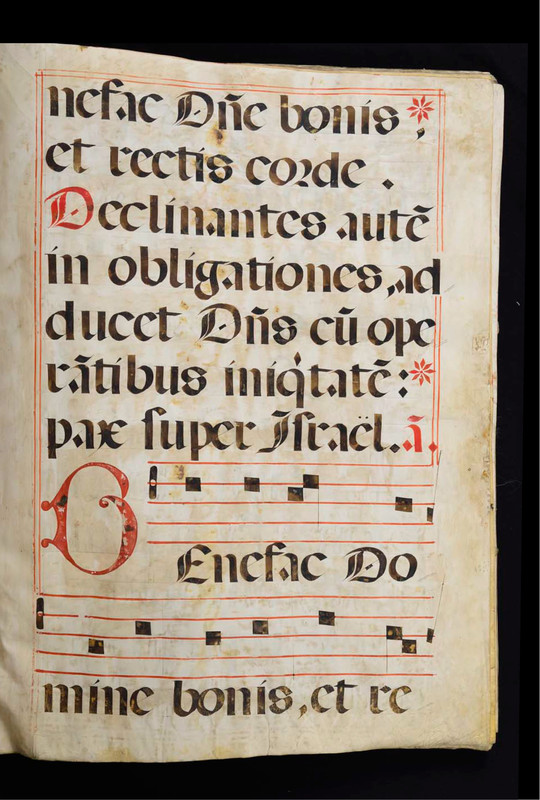 nefac Dñe bonis *
et rectis corde .
Declinantes autẽ
in obligationes, ad
ducet Dñs cũ ope
rãtibus iniq̇tatẽ: *
pax super Israël. ã.
BEnefac Do
mine bonis, et re